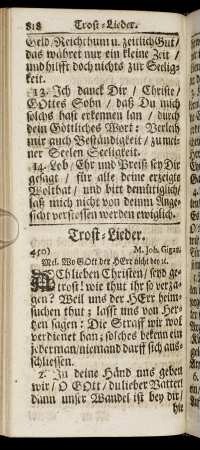 818 Trost-Lieder.
Geld/ Reichthum u. zeitlich Gut/
das währet nur ein kleine Zeit /
und hilfft doch nichts zur Selig-
keit.
13. Ich danck Dir / Christe/
GOttes Sohn / daß Du mich
solchs hast erkennen lan / durch
dein Göttliches Wort: Verleih
mir auch Beständigkeit / zu mei-
ner Seelen Seeligkeit.
14. Lob / Ehr und Preiß sey Dir
gesagt / für alle deine erzeigte
Wolthat / und bitt demütiglich/
laß mich nicht von deinm Ange-
sicht verstossen werden ewiglich.
Trost-Lieder.
450) M. Joh. Gigas.
Mel. Wo GOtt der HErr nicht bey ꝛc.
ACh lieben Christen/ seyd ge-
trost! wie thut ihr so verza-
gen? Weil uns der HErr heim-
suchen thut; lasst uns von Her-
tzen sagen: Die Straff wir wol
verdienet han; solches bekenn ein
jederman/niemand darff sich aus-
schliessen.
2. In deine Händ uns geben
wir/ O GOtt / du lieber Vatter!
dann unser Wandel ist bey dir/
hie